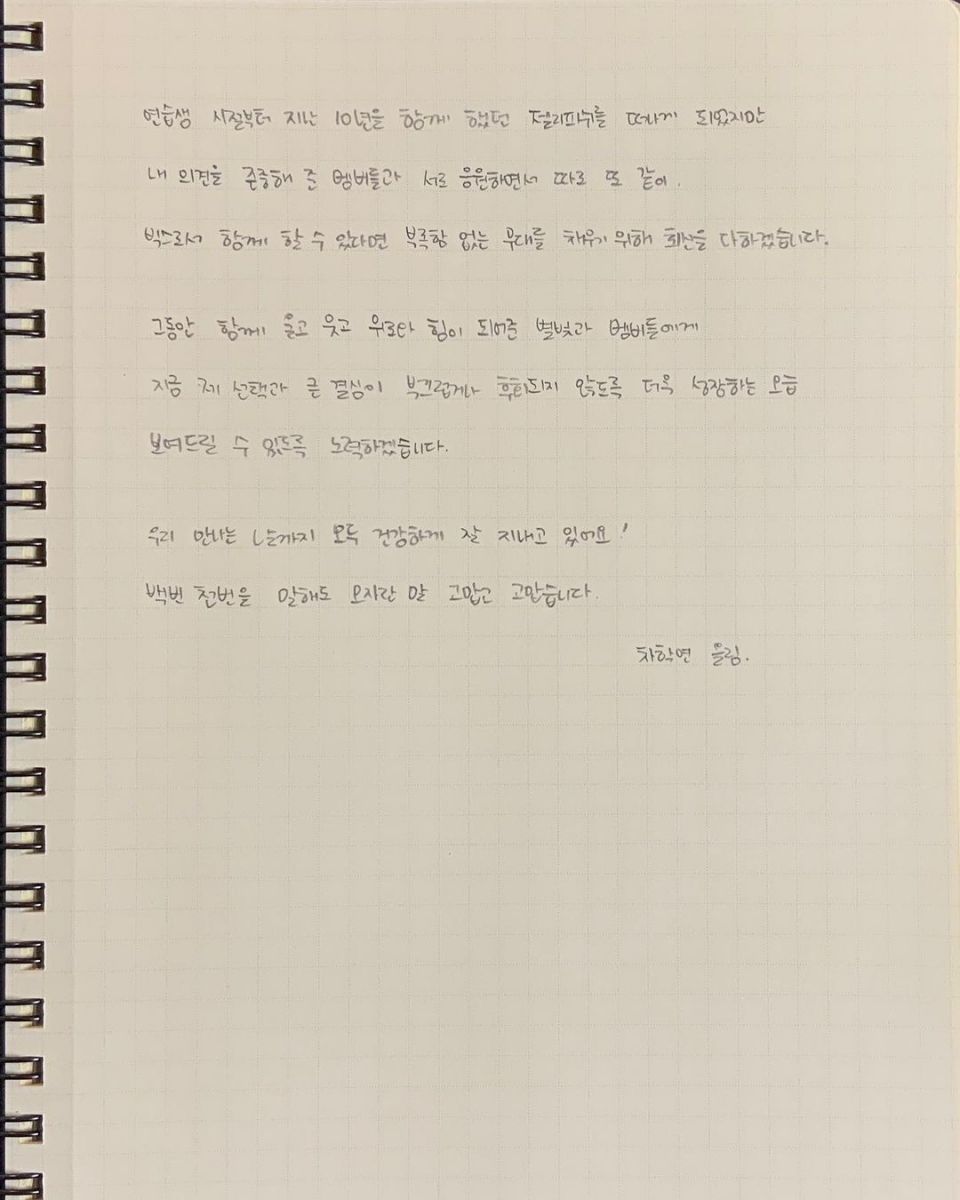 연습생 시절부터 지난 10년을 함께 했던 젤리피쉬를 떠나게 되었지만
내 의견을 존중해 준 멤버들과 서로 응원하면서 따로 또 같이.
빅스로서 함께 할 수 있다면 부족함 없는 무대를 채우기 위해 최선을 다하겠습니다.
그동안 함께 울고 웃고 위로와 힘이 되어준 별빛과 멤버들에게
지금 제 선택과 큰 결심이 부끄럽거나 후회되지 않도록 더욱 성장하는 모습
보여드릴 수 있도록 노력하겠습니다.
우리 만나는 날까지 모두 건강하게 잘 지내고 있어요!
백번 천번을 말해도 모자란 말 고맙고 고맙습니다.
차학연 올림.